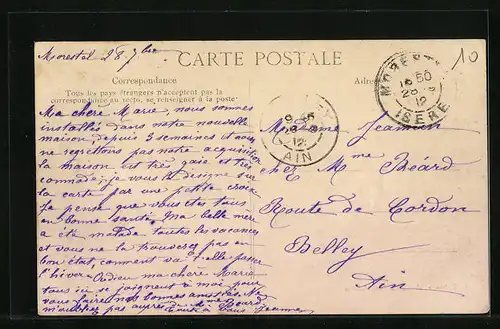 Morestel 28 7bre
CARTE POSTALE
10
Correspondance
Tous les pays étrangers n'acceptent pas la
correspondance au verso, se renseigner à la poste
MOREST
16 50
28
12
ISERE
9
12
AIN
Ma chère Marie nous sommes
installés dans notre nouvelle
maison, depuis 3 semaines et nous
ne regrettons pas notre acquisition
la maison est très gaie et très
commode; je vous la désigne sur
la carte par une petite croix
Je pense que vous êtes tous
en bonne santé. Ma belle mère
a été malade toutes les vacances
et vous ne la trouverez pas en
bon état, comment va-t-elle passer
l'hiver. Adieu ma chère Marie
tous ici se joignent à moi pour
vous faire nos bonnes amitiés. Ne
m'oubliez pas auprès de Mme Béard
à vous Jeanne
Madame Jeannin
chez Mme Béard
Route de Cordon
Belley
Ain